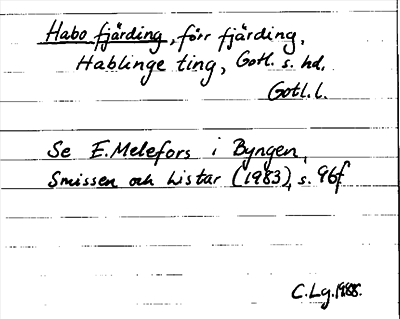 Habo fjärding, förr fjärding,
Hablinge ting, Gotl. s. hd,
Gotl. l.
Se E. Melefors i Byngen,
Smissen och Listar (1983), s. 96f
C. Lg. 1988.